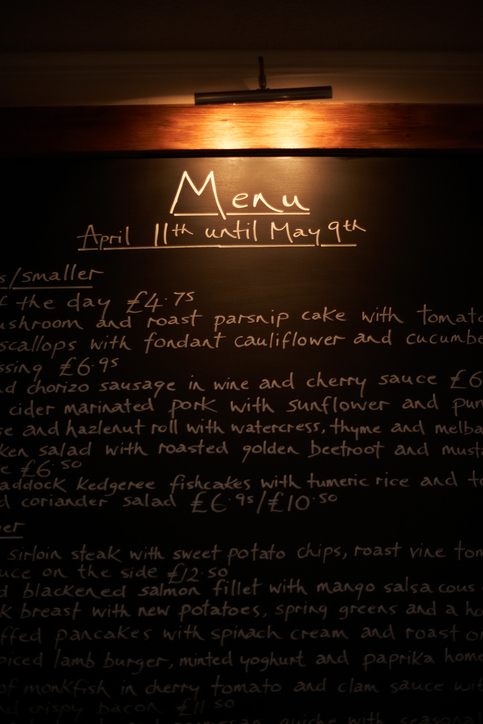 Menu
April 11th until May 9th
s/smaller
f the day £4.75
ushroom and roast parsnip cake with tomato
scallops with fondant cauliflower and cucumbe
ssing £6.95
d chorizo sausage in wine and cherry sauce £6
cider marinated pork with sunflower and pum
se and hazlenut roll with watercress, thyme and melba
ken salad with roasted golden beetroot and must
e £6.50
addock kedgeree fishcakes with tumeric rice and to
d coriander salad £6.95/£10.50
er
sirloin steak with sweet potato chips, roast vine tom
uce on the side £12.50
d blackened salmon fillet with mango salsa cous
k breast with new potatoes, spring greens and a ho
ffed pancakes with spinach cream and roast
piced lamb burger, minted yoghurt and paprika home
of monkfish in cherry tomato and clam sauce wit
nd crispy bacon £11.50
with